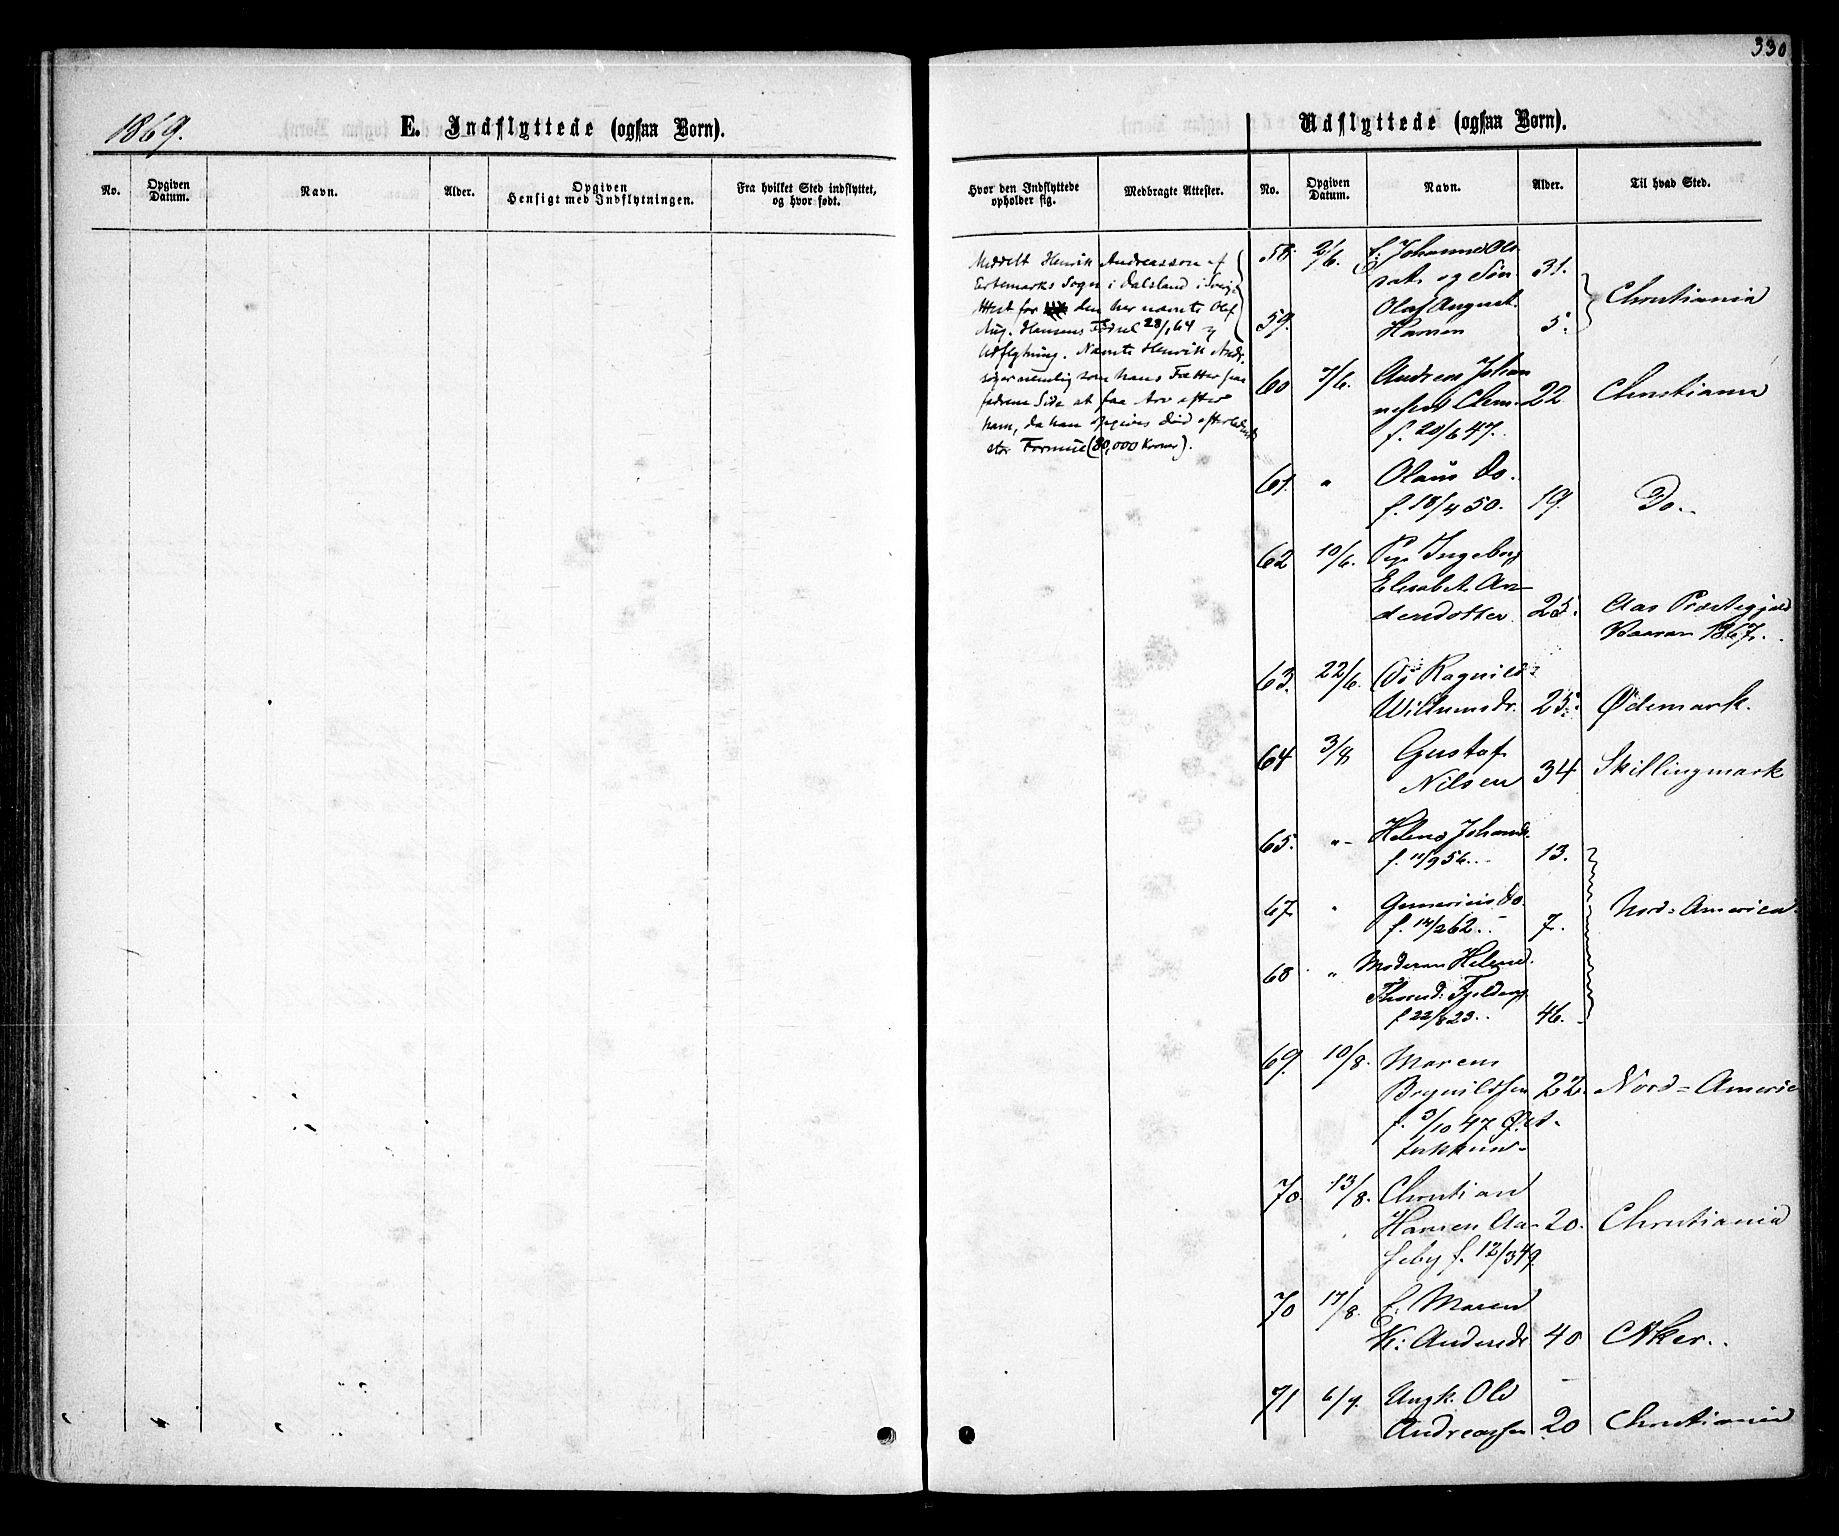 330
1869.
E. Indflyttede (ogsaa Børn).
Udflyttede (ogsaa Børn).
No.
Opgiven Datum.
Navn.
Alder.
Opgiven Hensigt med Indflytningen.
Fra hvilket Sted indflyttet, og hvor født.
Hvor den Indflyttede opholder sig.
Medbragte Attester.
No.
Opgiven Datum.
Navn.
Alder.
Til hvad Sted.
Meddelt Henrik Andreasson af
Ertemarks Sogn i Dalsland i Sverige
Attest for den her nævnte Olaf
Aug. Hansens Fødsel 28/1 64 og
Udflytning. Nævnte Henrik Andr.
søger nemlig som hans Fætter paa
fædrene Side at faa Arv efter
ham, da han opgives død efterladende
stor Formue (80,000 Kroner).
58. 2/6. Johanne Ols-
datr og Søn 31.
59. Olaf August
Hansen 5. Christiania
60 7/6. Andreas Johan
nesen 22 Christiania
f. 20/6 47.
61. " Olaus Do.
f. 18/4 50. 19. Do.
62 10/6. Pige Ingeborg
Elisabet An-
dersdotter 25. Aas Præstegjeld
1867.
63. 22/6. Do Ragnild
Willumsdr. 25. Ødemark.
64 3/8 Gustaf
Nilsen 34 Skillingmark
65. " Helene Johannsd.
f. 11/9 56. 13.
67. " Do.
f. 12/2 62. 7. Nord-America
68 " Moderen Helene
Thorsd.
f 22/8 23. 46.
69. 10/8. Maren
Brynildsen 22. Nord-Americ
f. 9/10 47
70. 13/8. Christian
Hansen Aa- 20. Christiania
seby f. 12/3 49.
70 17/8. Maren
K. Andersdr 40 Aker.
71 6/9. Ungk. Ole
Andreassen 20 Christiania